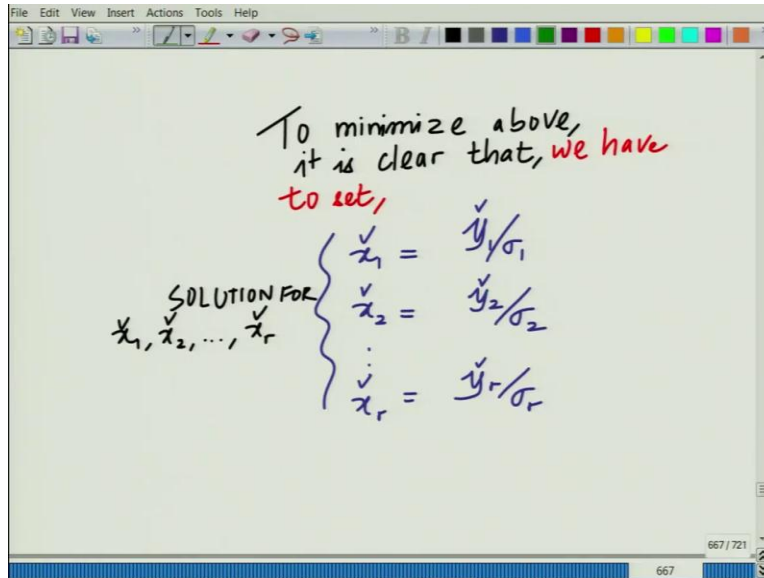 File Edit View Insert Actions Tools Help
B I
To minimize above,
it is clear that, we have
to set,
x̌₁ = y̌₁/σ₁
SOLUTION FOR
x̌₁, x̌₂, ..., x̌ᵣ
x̌₂ = y̌₂/σ₂
⋮
x̌ᵣ = y̌ᵣ/σᵣ
667 / 721
667